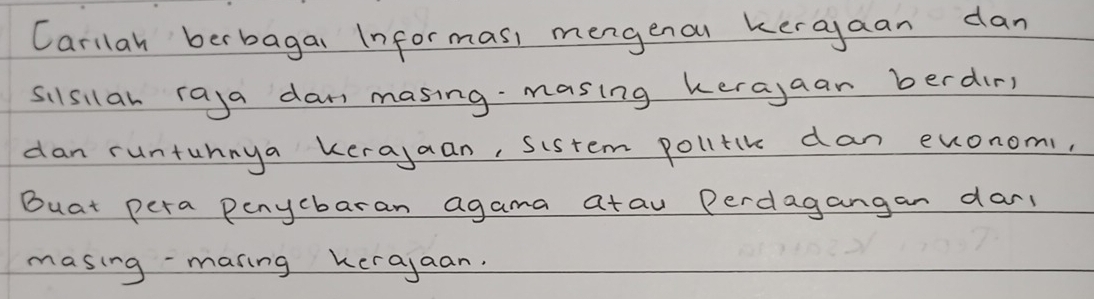 Carilah berbagai Informasi mengenai kerajaan dan
silsilah raja dari masing-masing kerajaan berdiri
dan runtuhnya kerajaan, sistem politik dan ekonomi,
Buat peta penyebaran agama atau Perdagangan dari
masing-masing kerajaan.